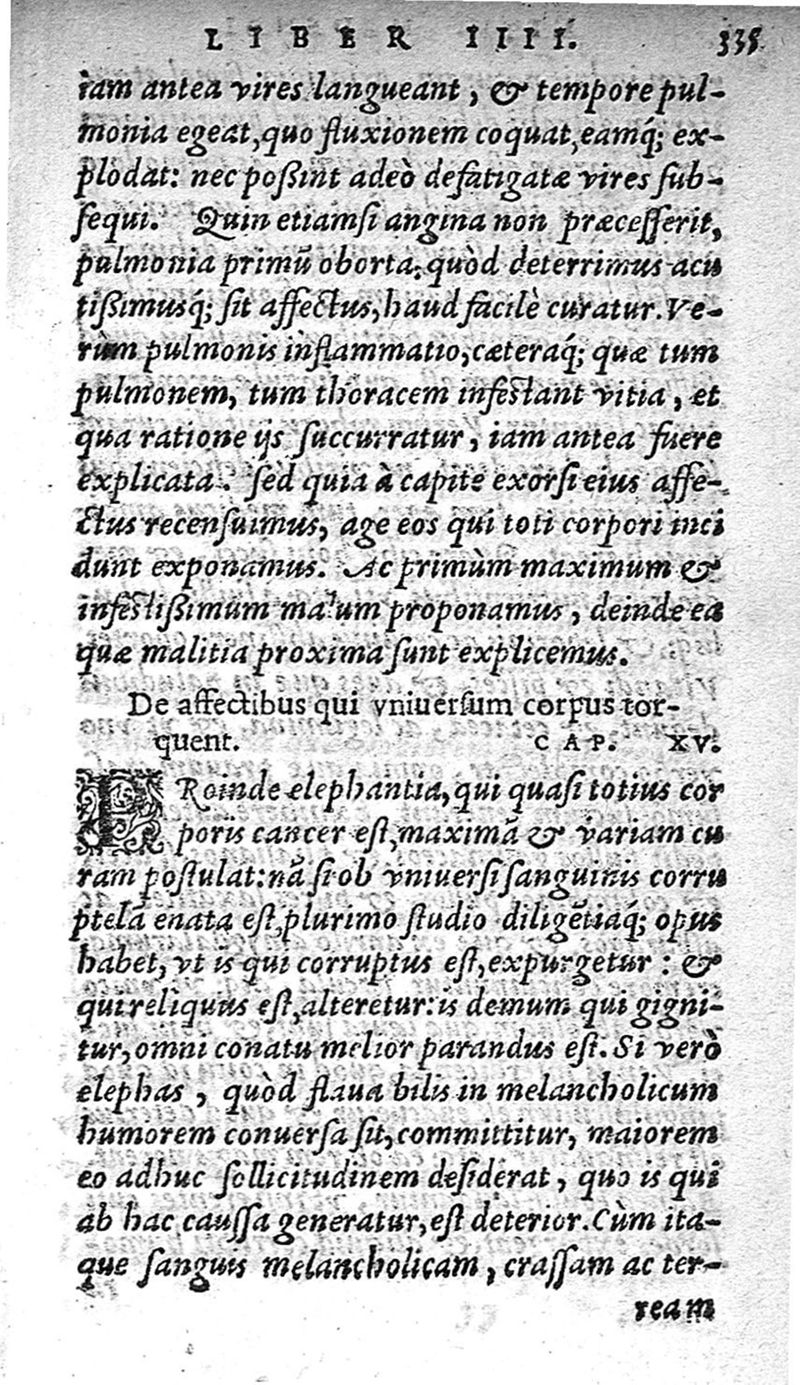 LIBER IIII. 335
iam antea vires langueant, & tempore pul-
monia egeat, quo fluxionem coquat, eamq́; ex-
plodat: nec poßint adeò defatigatæ vires sub-
sequi. Quin etiamsi angina non præcesserit,
pulmonia primũ oborta, quòd deterrimus acu
tißimusq́; sit affectus, haud facilè curatur. Ve-
rùm pulmonis inflammatio, cæteraq́; quæ tum
pulmonem, tum thoracem infestant vitia, et
qua ratione ijs succurratur, iam antea fuere
explicata. sed quia à capite exorsi eius affe-
ctus recensuimus, age eos qui toti corpori inci
dunt exponamus. Ac primùm maximum &
infestißimum malum proponamus, deinde ea
quæ malitia proxima sunt explicemus.
De affectibus qui vniuersum corpus tor-
quent. CAP. XV.
PRoinde elephantia, qui quasi totius cor
poris cancer est, maximã & variam cu
ram postulat: nã si ob vniuersi sanguinis corru
ptelã enata est, plurimo studio diligẽtiaq́; opus
habet, vt is qui corruptus est, expurgetur: &
qui reliquus est, alteretur: is demum qui gigni-
tur, omni conatu melior parandus est. Si verò
elephas, quòd flaua bilis in melancholicum
humorem conuersa sit, committitur, maiorem
eo adhuc sollicitudinem desiderat, quo is qui
ab hac caussa generatur, est deterior. Cùm ita-
que sanguis melancholicam, crassam ac ter-
ream